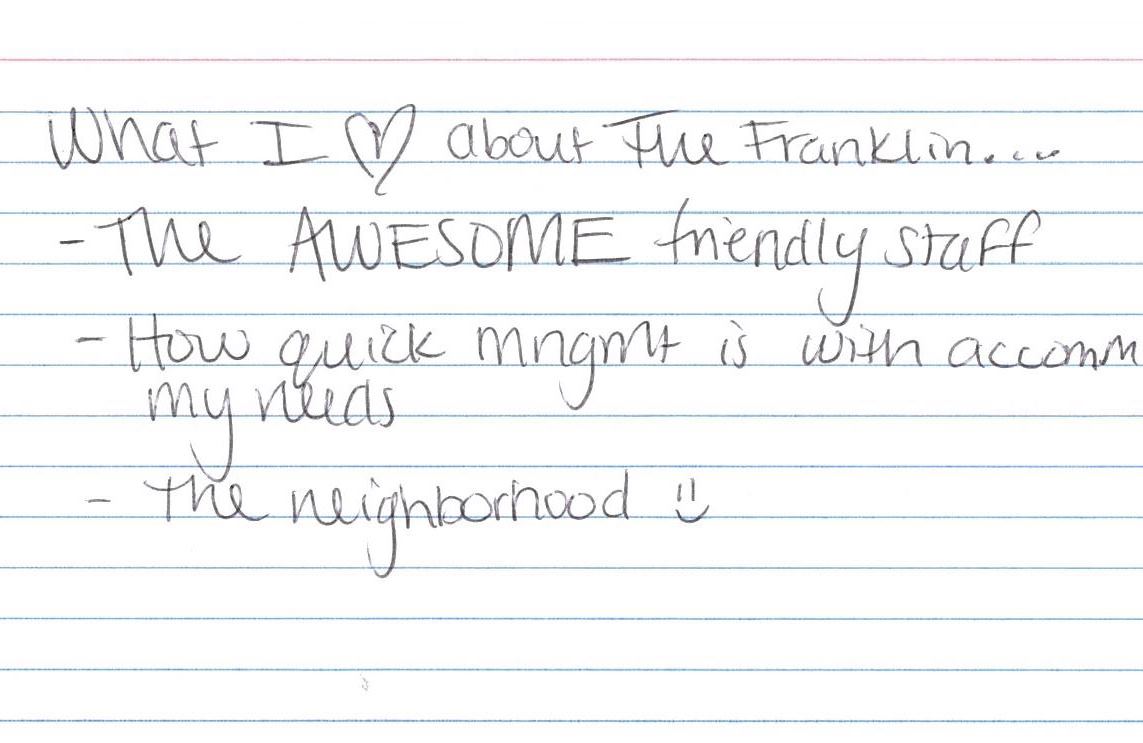 What I ♡ about The Franklin....
- The AWESOME friendly staff
- How quick mngmt is with accomm
my needs
- The neighborhood :)